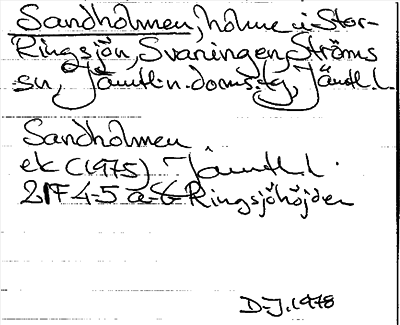 Sandholmen, holme i Stor-
Ringsjön, Svaningen, Ströms
sn, Jämtl:n. doms:g, Jämtl.l.
Sandholmen
ek (1975) Jämtl.l.
21F 4-5 a-b Ringsjöhöjden
D-J. 1978